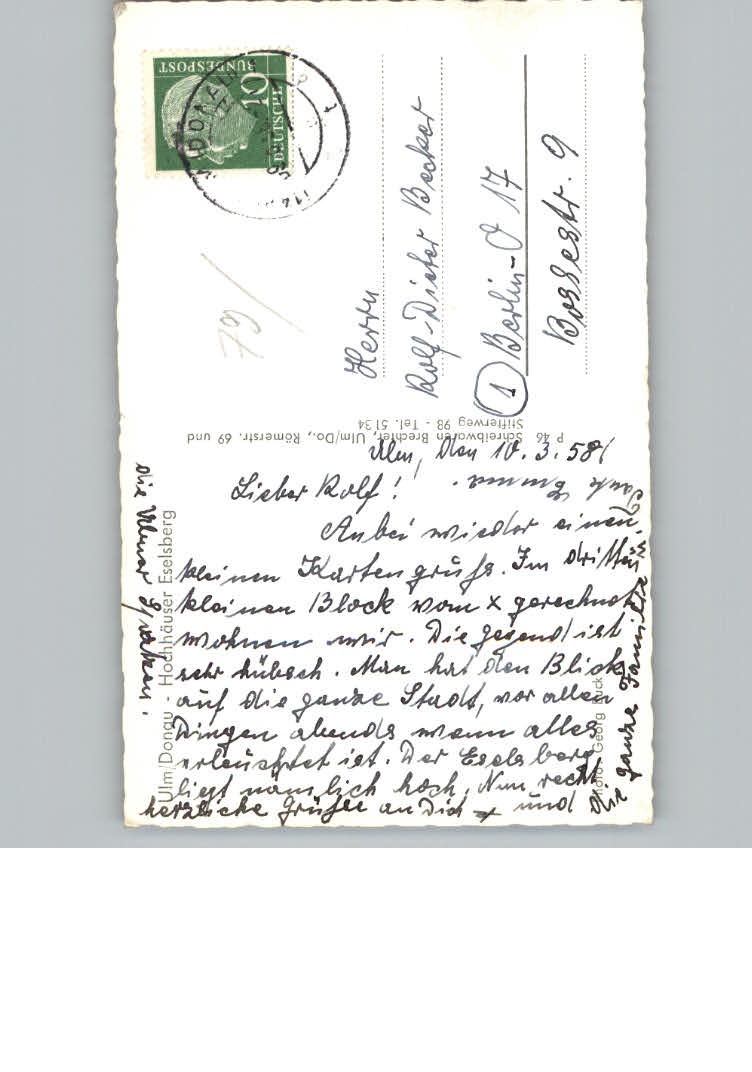 DEUTSCHE
BUNDESPOST
10
79
Herrn
Rolf-Dieter Becker
1 Berlin-O 17
Bossestr. 9
P 46 Schreibwaren Brechter, Ulm/Do., Römerstr. 69 und
Stifterweg 98 - Tel. 5134
Ulm/Donau - Hochhäuser Eselsberg
Ulm, den 10.3.58
Lieber Rolf!
Anbei wieder einen
kleinen Kartengruß. Im dritten
kleinen Block vom x gerechnet
wohnen wir. Die Gegend ist
sehr hübsch. Man hat den Blick
auf die ganze Stadt, vor allen
Dingen abends wenn alles
erleuchtet ist. Der Eselsberg
liegt nämlich hoch. Nun recht
herzliche Grüße an Dich und
die ganze Familie
die Ulmer
Photo Georg